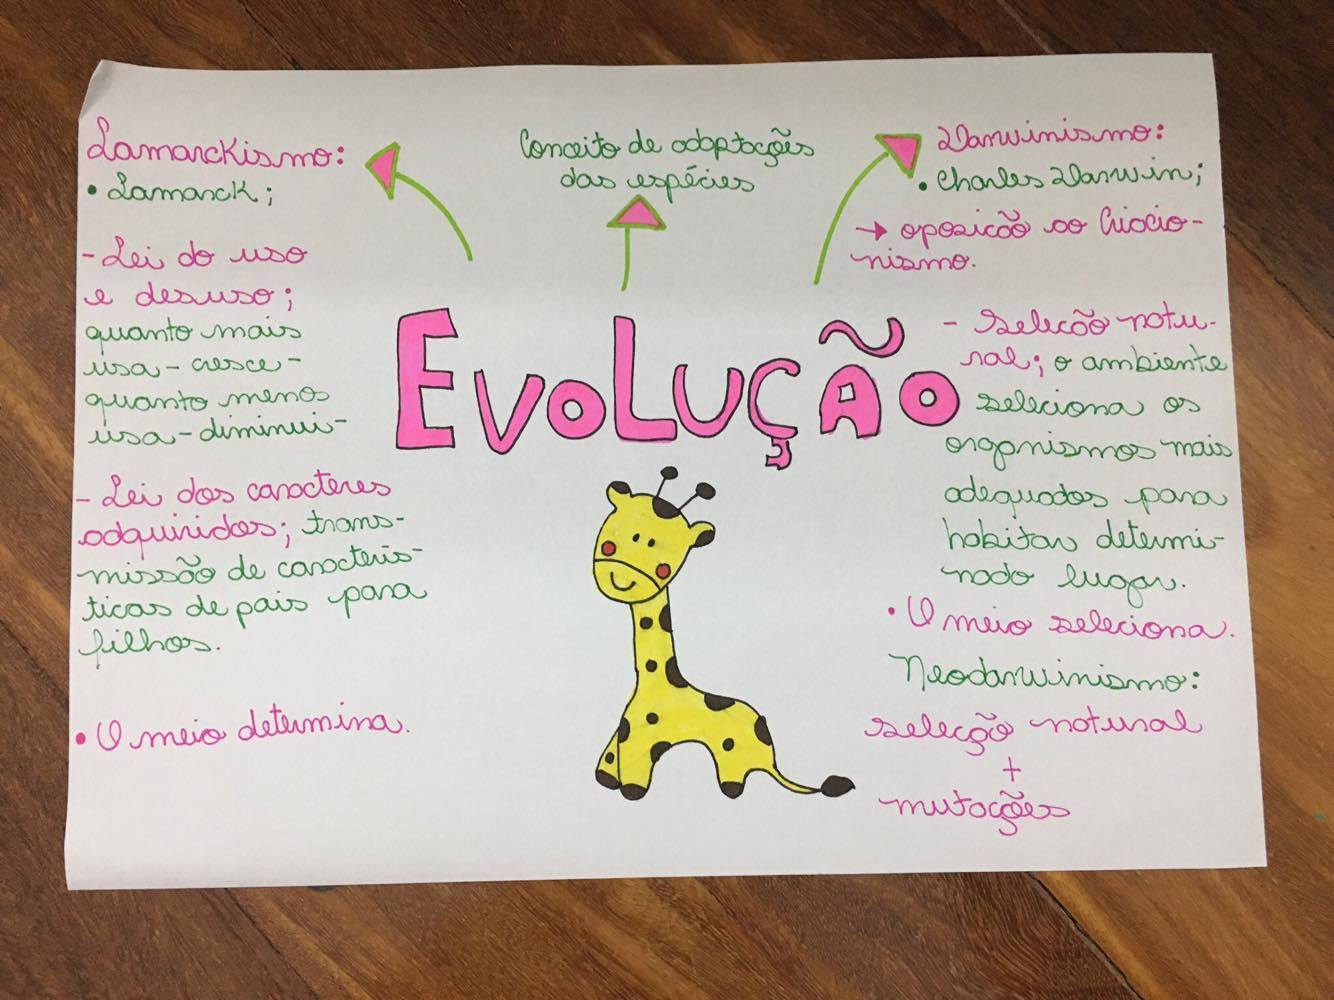 Lamarckismo:
• Lamarck;
- Lei do uso
e desuso;
quanto mais
usa - cresce -
quanto menos
usa - diminui -
- Lei dos caracteres
adquiridos; trans-
missão de caracterís-
ticas de pais para
filhos.
• O meio determina.
Conceito de adaptações
das espécies
EVOLUÇÃO
Darwinismo:
• Charles Darwin;
→ oposição ao Criacio-
nismo.
- Seleção natu-
ral; o ambiente
seleciona os
organismos mais
adequados para
habitar determi-
nado lugar.
• O meio seleciona.
Neodarwinismo:
seleção natural
+
mutações